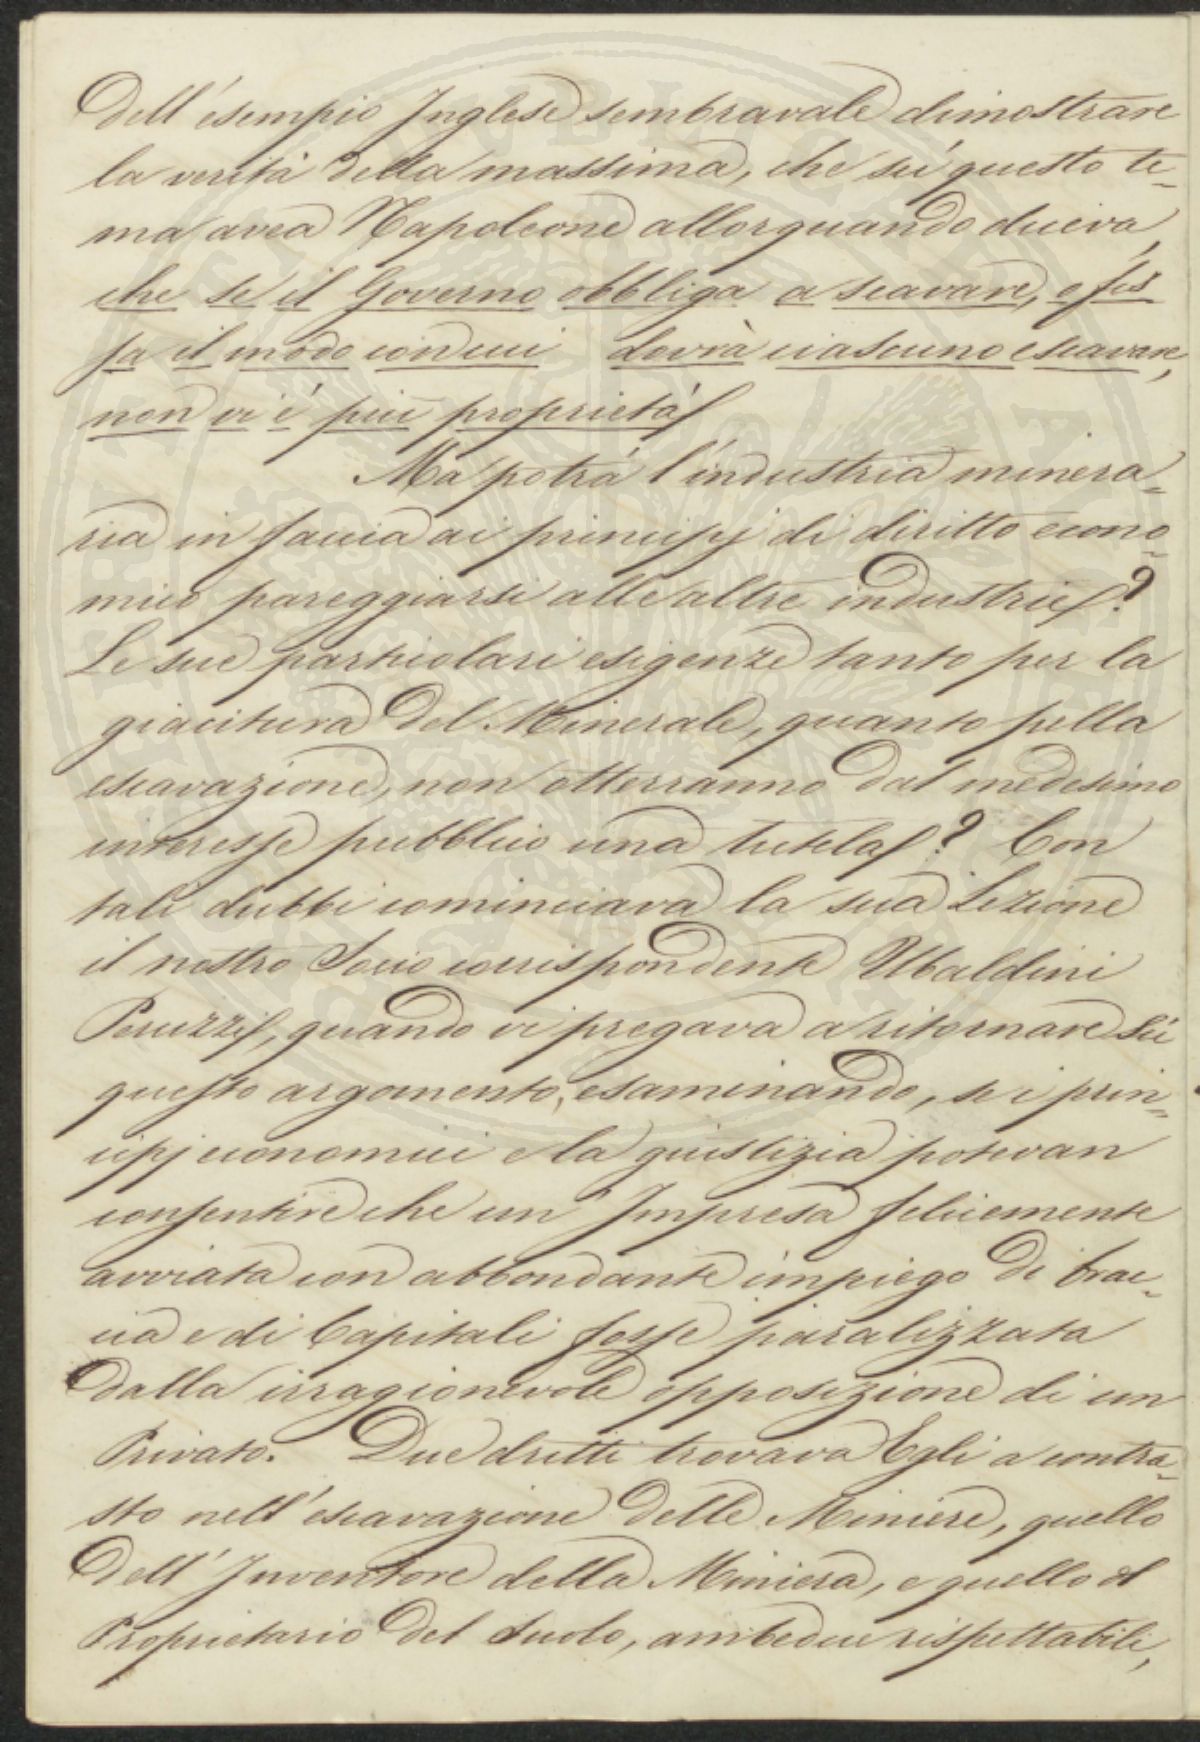 Dell'esempio Inglese sembravale dimostrare
la verità della massima, che sù questo te-
ma avea Napoleone allorquando diceva,
che se il Governo obbliga a scavare, e fis
sa il modo con cui dovrà ciascuno escavare,
non vi è più proprietà
Ma potrà l'industria minera-
ria in faccia ai principj di diritto econo-
mico pareggiarsi alle altre industrie?
Le sue particolari esigenze tanto per la
giacitura del Minerale, quanto pella
escavazione, non otterranno dal medesimo
interesse pubblico una tutela? Con
tali dubbi cominciava la sua Lezione
il nostro Socio corrispondente Ubaldini
Peruzzi, quando vi pregava a ritornare sù
questo argomento, esaminando, se i prin-
cipj economici e la giustizia potevan
consentire che un' Impresa felicemente
avviata con abbondante impiego di brac-
cia e di Capitali fosse paralizzata
dalla irragionevole opposizione di un
Privato. Due dritti trovava Egli a contra-
sto nell'escavazione delle Miniere, quello
dell'Inventore della Miniera, e quello del
Proprietario del Suolo, ambedue rispettabili,